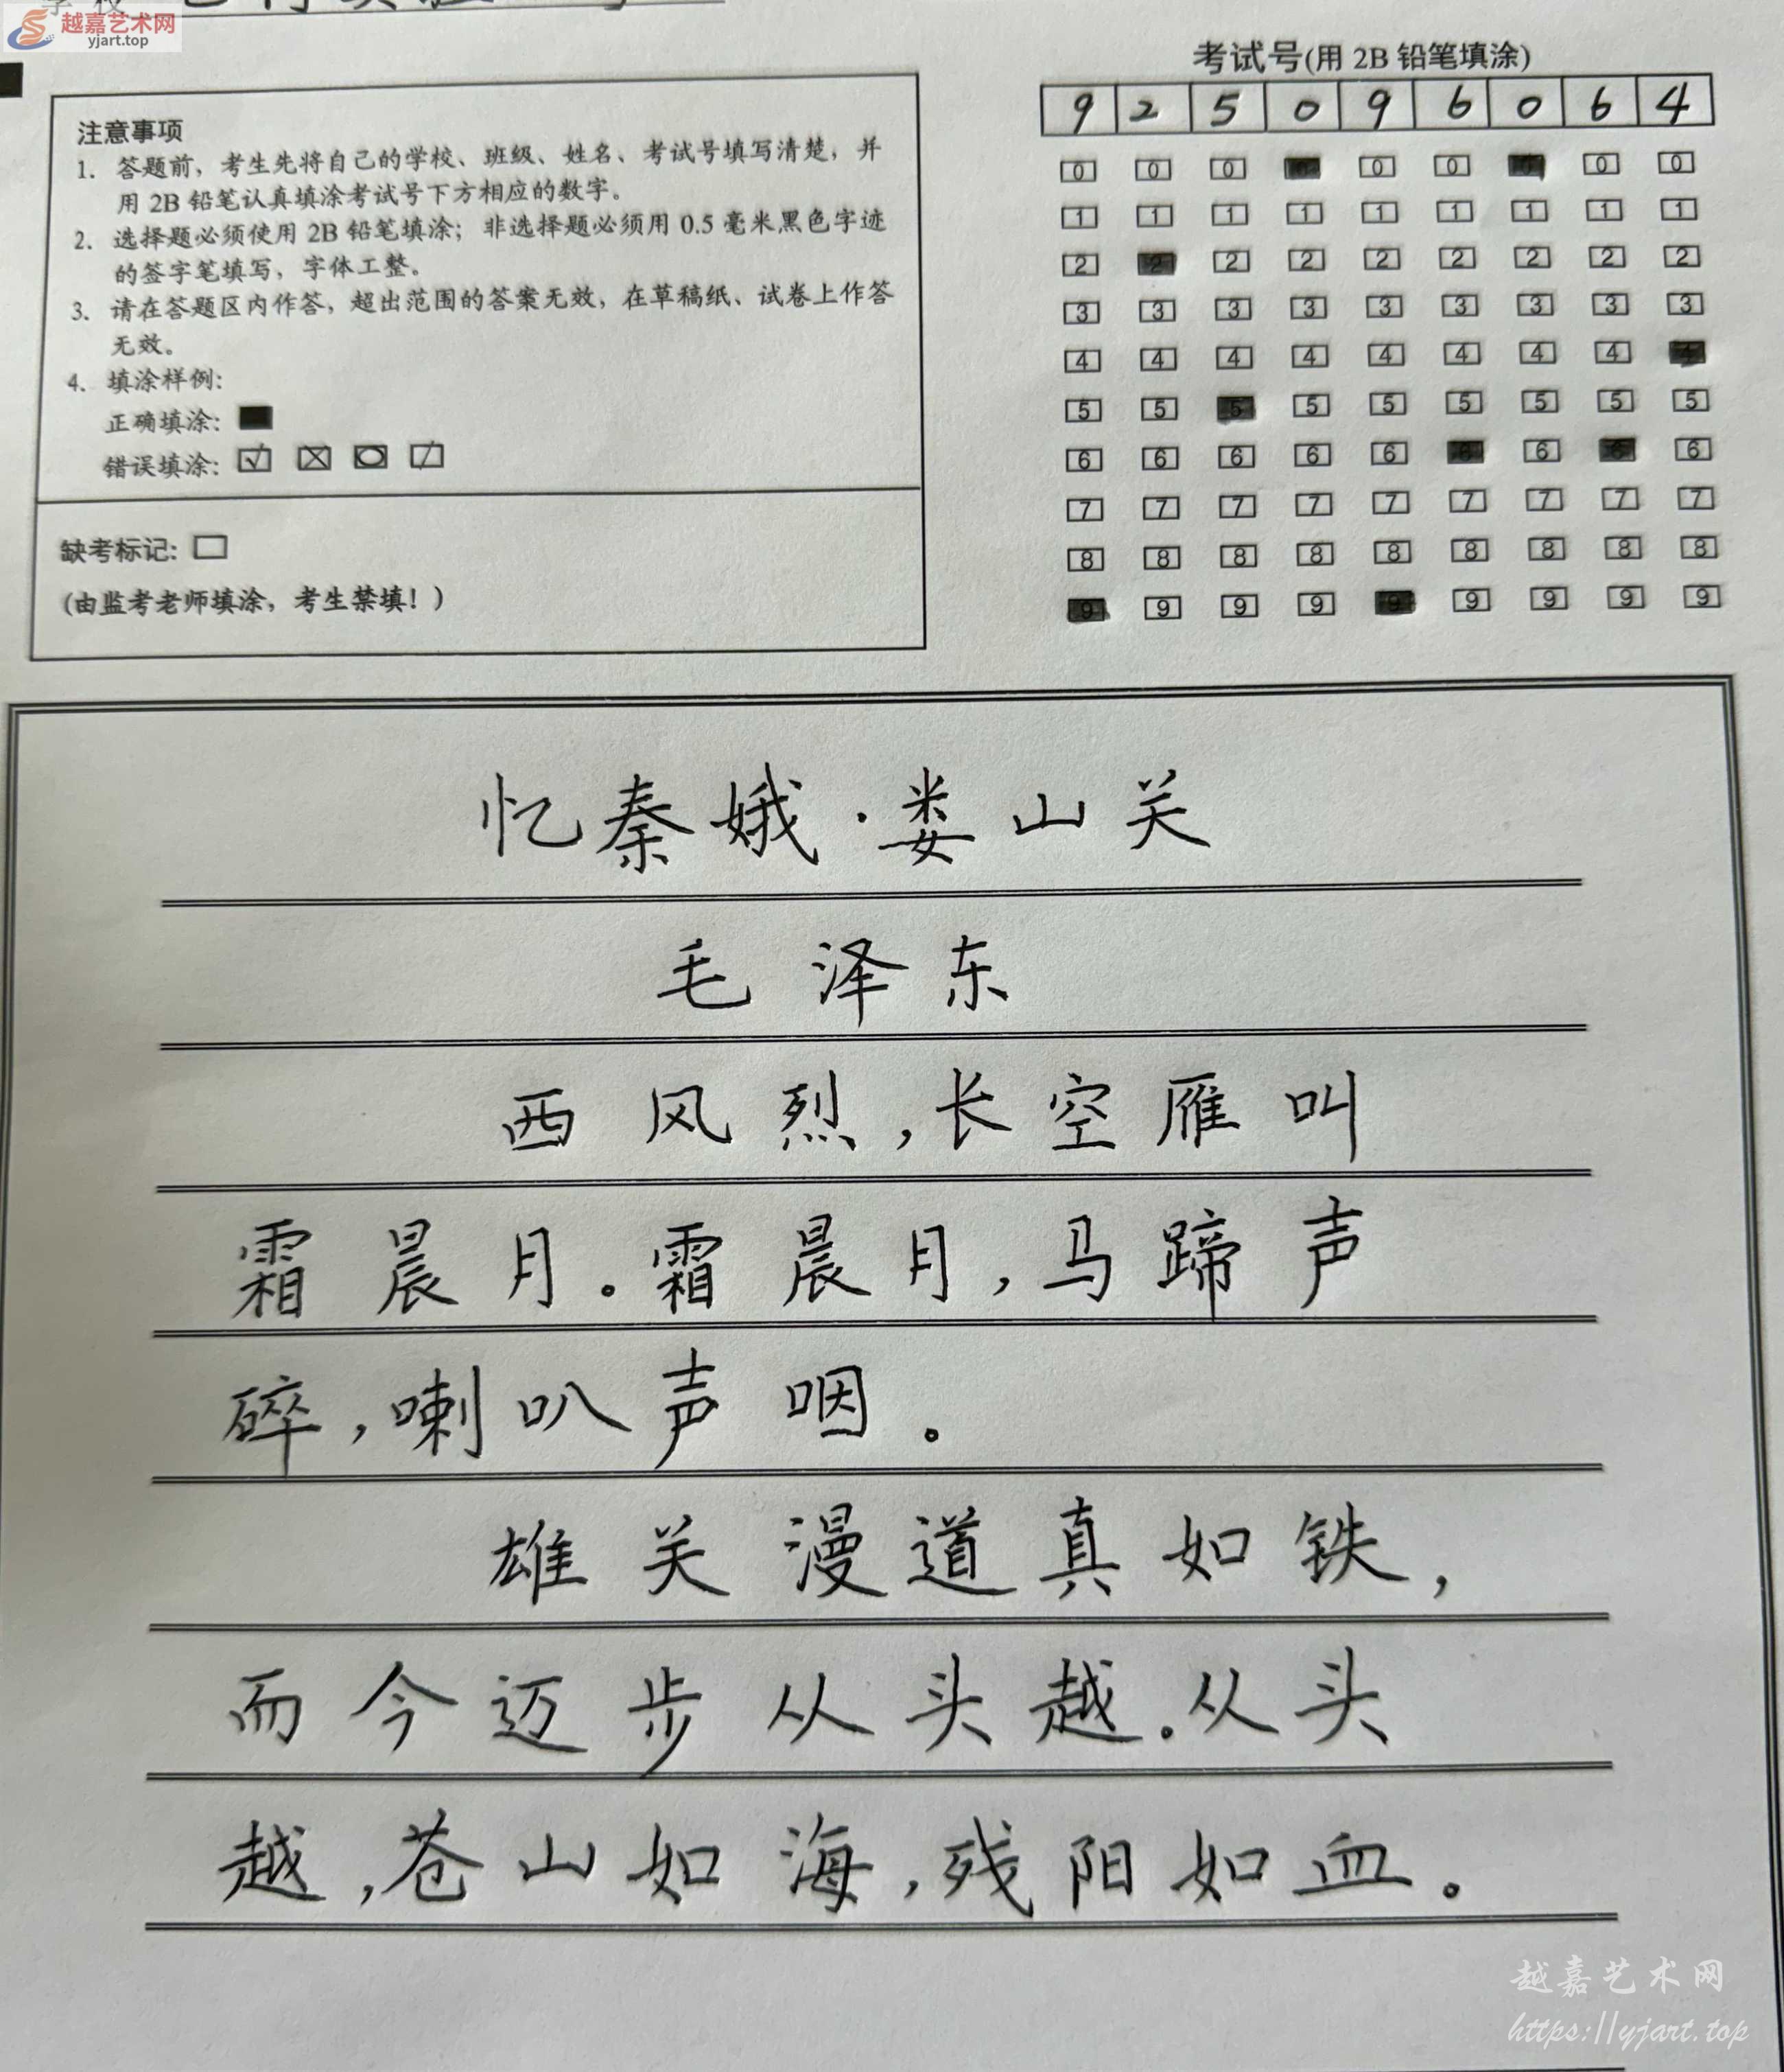 越嘉艺术网
yjart.top
考试号(用 2B 铅笔填涂)
9 2 5 0 9 6 0 6 4
0 0 0 0 0 0 0 0 0
1 1 1 1 1 1 1 1 1
2 2 2 2 2 2 2 2 2
3 3 3 3 3 3 3 3 3
4 4 4 4 4 4 4 4 4
5 5 5 5 5 5 5 5 5
6 6 6 6 6 6 6 6 6
7 7 7 7 7 7 7 7 7
8 8 8 8 8 8 8 8 8
9 9 9 9 9 9 9 9 9
注意事项
1. 答题前，考生先将自己的学校、班级、姓名、考试号填写清楚，并
用 2B 铅笔认真填涂考试号下方相应的数字。
2. 选择题必须使用 2B 铅笔填涂；非选择题必须用 0.5 毫米黑色字迹
的签字笔填写，字体工整。
3. 请在答题区内作答，超出范围的答案无效，在草稿纸、试卷上作答
无效。
4. 填涂样例：
正确填涂：
错误填涂：
缺考标记：
（由监考老师填涂，考生禁填！）
忆秦娥·娄山关
毛泽东
西风烈，长空雁叫
霜晨月。霜晨月，马蹄声
碎，喇叭声咽。
雄关漫道真如铁，
而今迈步从头越。从头
越，苍山如海，残阳如血。
越嘉艺术网
https://yjart.top